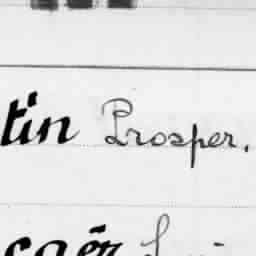 tin Prosper.
caër